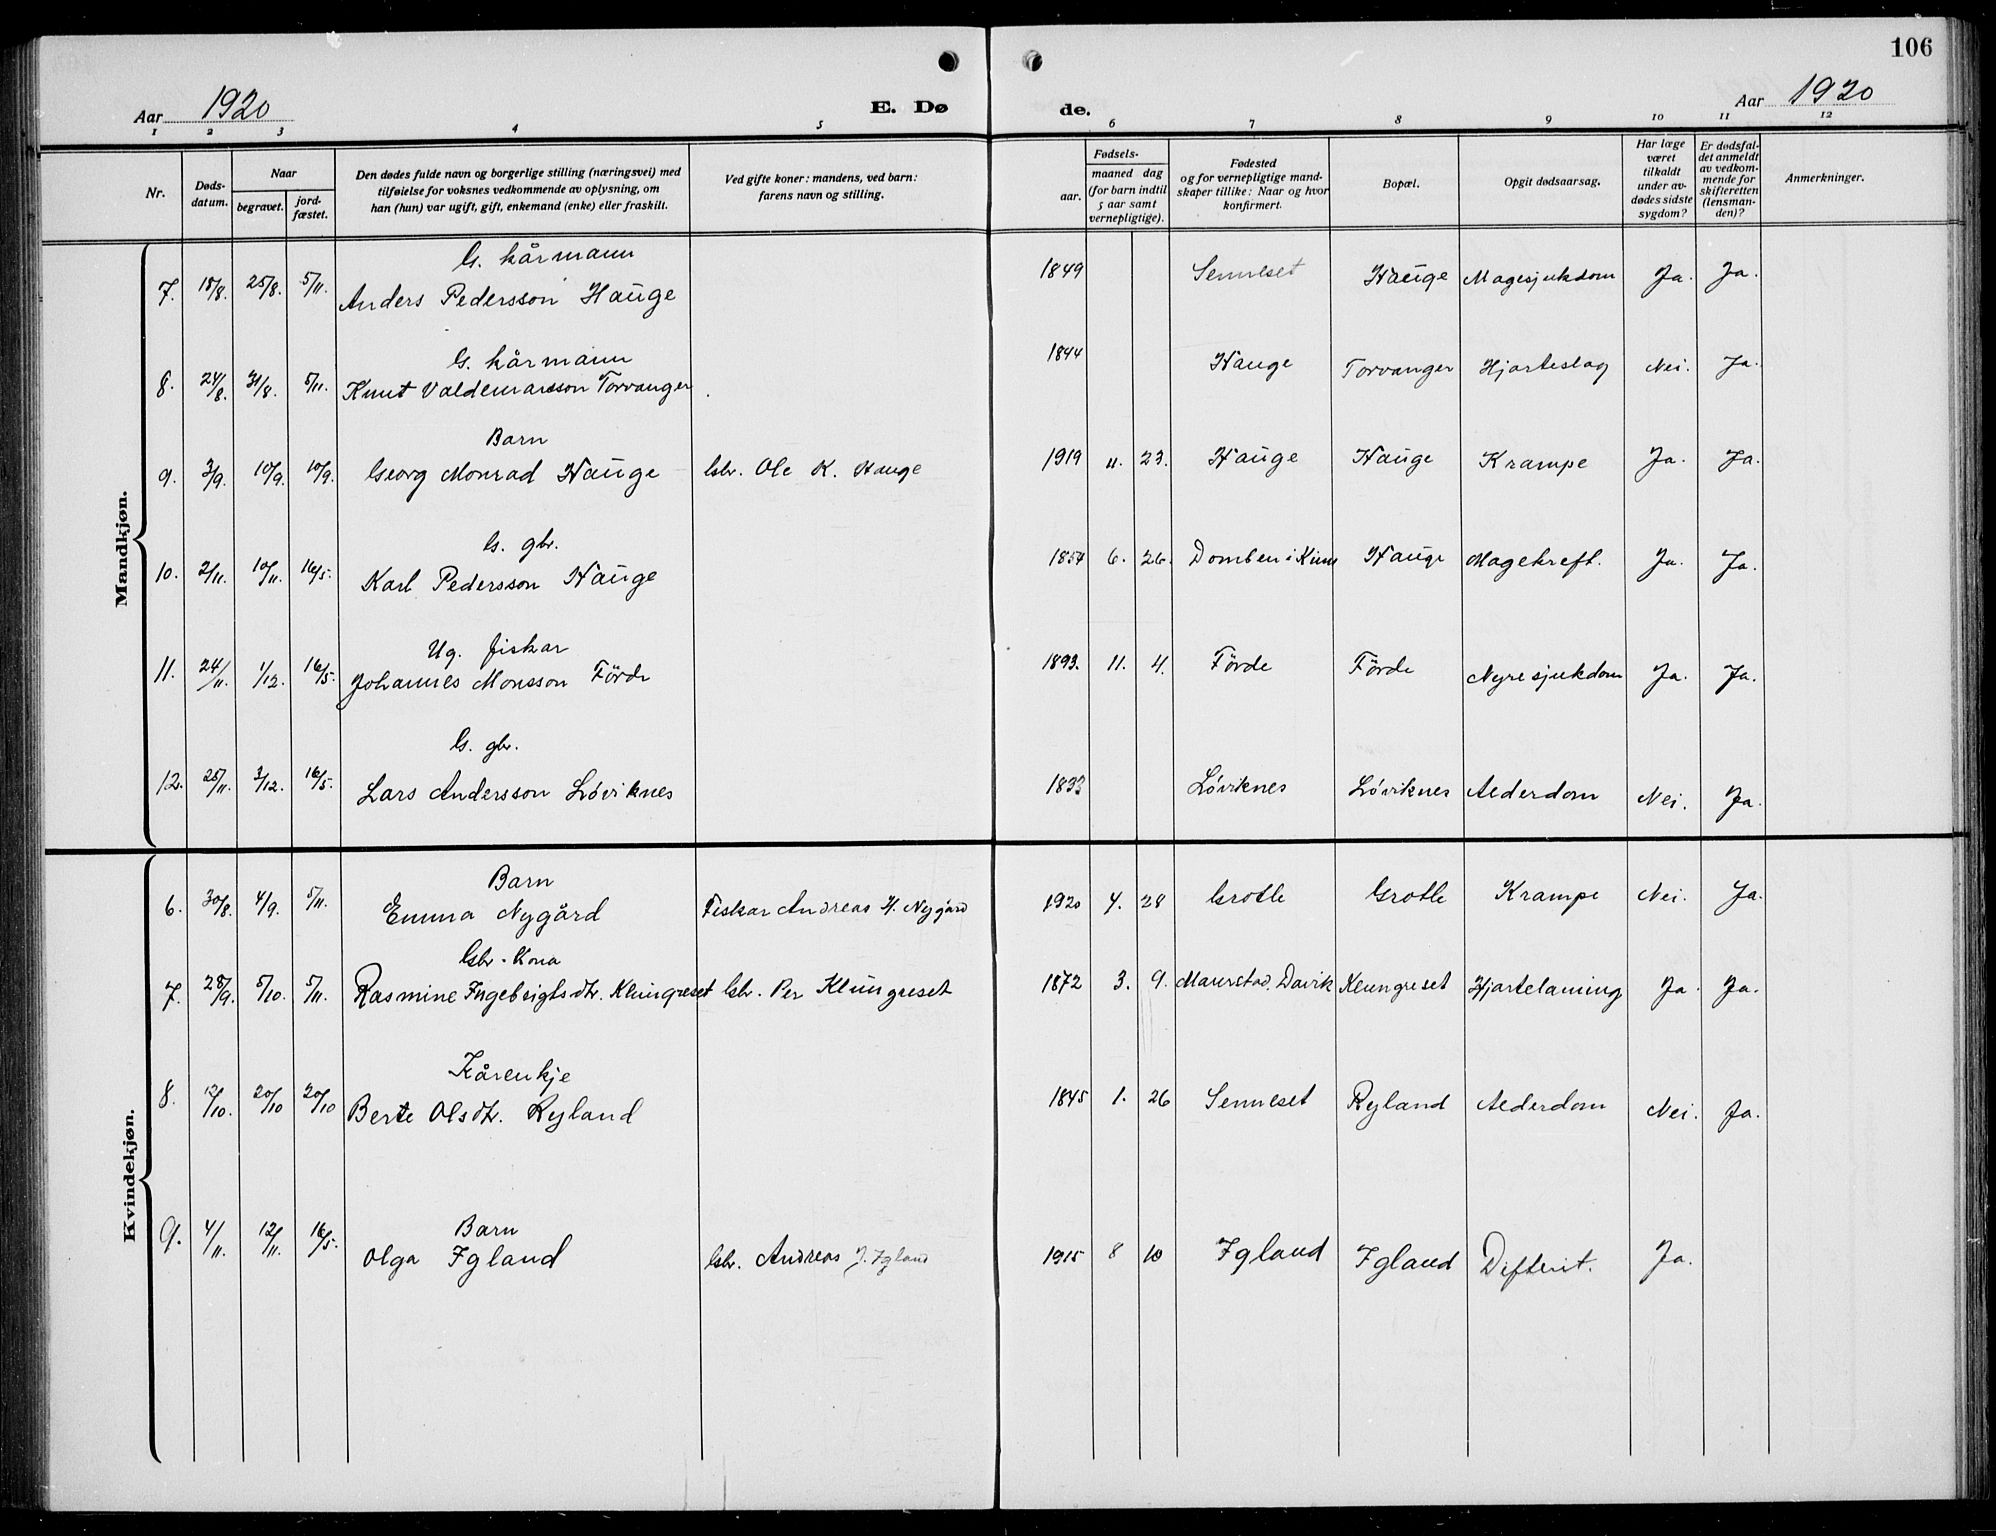 106
Aar 1920 E. Dø de. Aar 1920
1 2 3 4 5 6 7 8 9 10 11 12
Nr. Døds-datum. Naar begravet. jord-fæstet. Den dødes fulde navn og borgerlige stilling (næringsvei) med tilføielse for voksnes vedkommende av oplysning, om han (hun) var ugift, gift, enkemand (enke) eller fraskilt. Ved gifte koner: mandens, ved barn: farens navn og stilling. Fødsels- aar. maaned dag (for barn indtil 5 aar samt vernepligtige). Fødested og for vernepligtige mand-skaper tillike: Naar og hvor konfirmert. Bopæl. Opgit dødsaarsag. Har læge været tilkaldt under av-dødes sidste sygdom? Er dødsfal-det anmeldt av vedkom-mende for skifteretten (lensman-den)? Anmerkninger.
Mandkjøn.
G. kårmann
7. 18/8. 25/8. 5/11. Anders Pedersson Hauge 1849 Senneset Hauge Magesjukdom Ja. Ja.
G. kårmann
8. 24/8. 31/8. 5/11. Knut Valdemarsson Torvanger 1844 Hauge Torvanger Hjarteslag Nei. Ja.
Barn
9. 3/9. 10/9. 10/9. Georg Monrad Hauge Gbr. Ole K. Hauge 1919 11. 23. Hauge Hauge Krampe Ja. Ja.
G. gbr.
10. 2/11. 10/11. 16/5. Karl Pedersson Hauge 1854 6. 26. Domben i Kinn Hauge Magekreft. Ja. Ja.
Ug. fiskar
11. 24/11. 1/12. 16/5. Johannes Monsson Förde 1893. 11. 4. Förde Förde Nyresjukdom Ja. Ja.
G. gbr.
12. 25/11. 3/12. 16/5. Lars Andersson Lóviknes 1833 Lóviknes Lóviknes Alderdom Nei. Ja.
Kvindekjøn.
Barn
6. 30/8. 4/9. 5/11. Emma Nygård Fiskar Andreas H. Nygård 1920 4. 28 Grotle Grotle Krampe Nei. Ja.
Gbr. Kona
7. 28/9. 5/10. 5/11. Rasmine Ingebrigtsdtr. Klungreset Gbr. Per Klungreset 1872 3. 9. Maurstad. Davik Klungreset Hjartelaming Ja. Ja.
Kårenkje
8. 12/10. 20/10 20/10 Berte Olsdtr. Ryland 1845 1. 26 Senneset Ryland Alderdom Nei. Ja.
Barn
9. 4/11. 12/11. 16/5. Olga Igland Gbr. Andreas J. Igland 1915 8 10 Igland Igland Difterit. Ja.